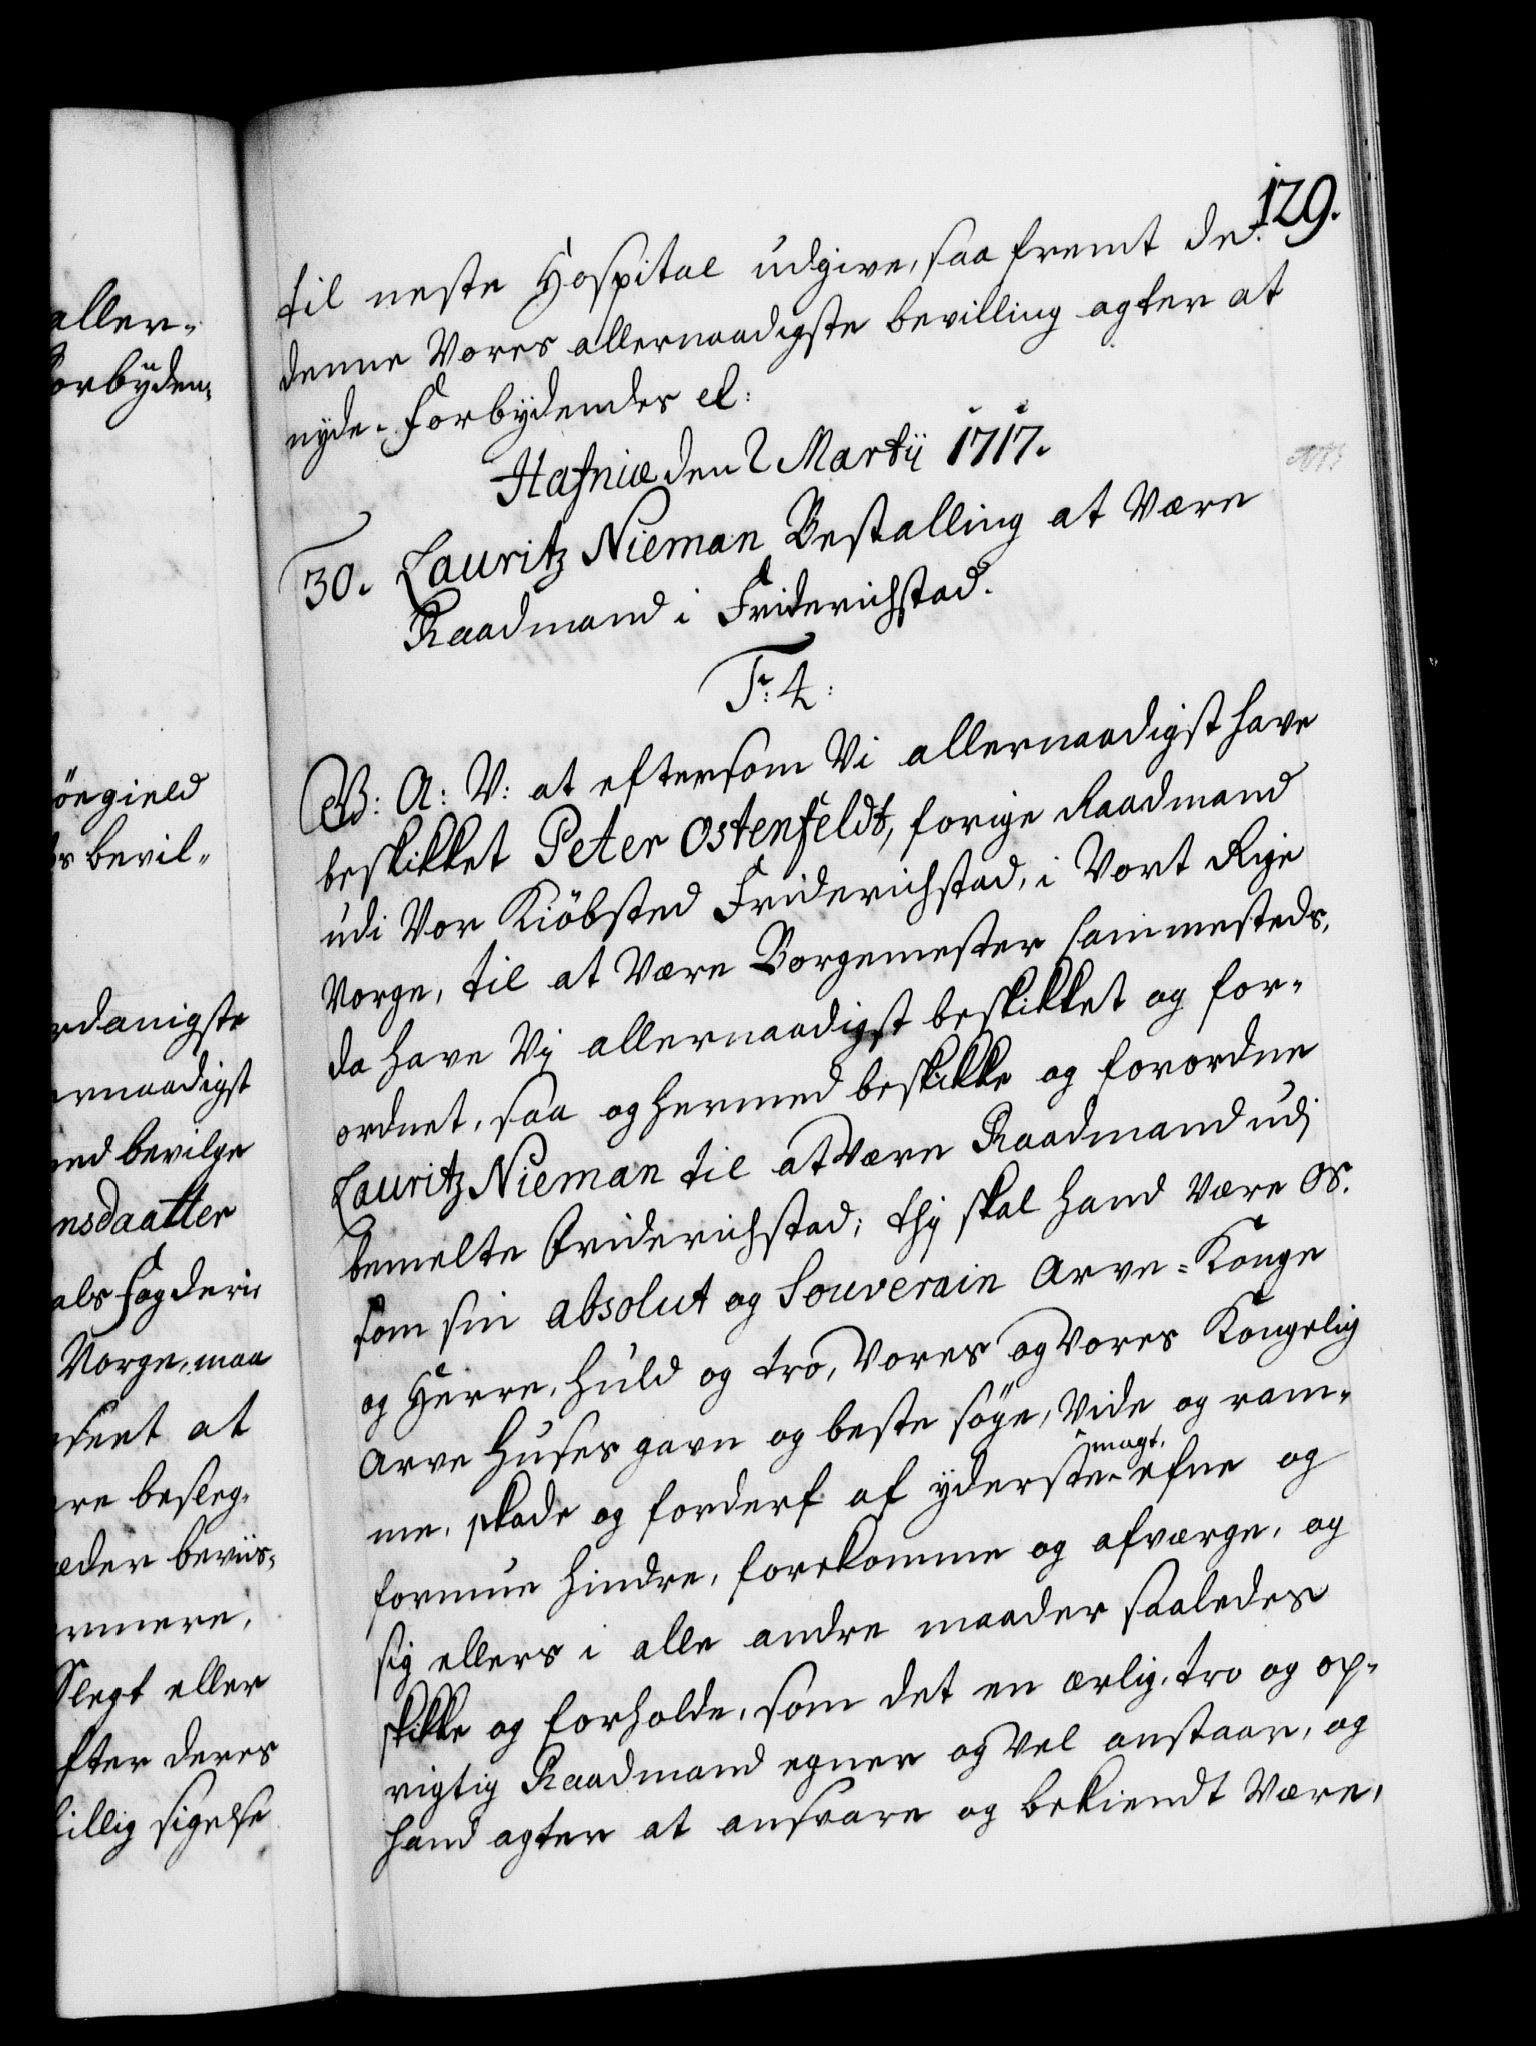 129.
til neste Hospital udgive, saa fremt de
denne Vores allernaadigste bevilling agter at
nyde. Forbydendes el:
Hafniæ den 2 Martii 1717.
30. Lauritz Nieman Bestalling at Være
Raadmand i Friderichstad.
F: 4:
G: A: V: at eftersom Vi allernaadigst have
beskikket Peter Ostenfeldt, forige Raadmand
udi Vor Kiöbsted Friderichstad, i Vort Rige
Norge, til at Være Borgemester sammesteds,
da have Vy allernaadigst beskikket og for-
ordnet, saa og hermed beskikke og forordne
Lauritz Nieman til at Være Raadmand udj
bemelte Friderichstad; thj skal hand Være os.
som sin absolut og Souverain Arve-Konge
og Herre, huld og tro, Vores og Vores Kongelig
Arve Huses gavn og beste söge, Vide og ram-
me, skade og forderf af yderste magt, efne og
formue hindre, forekomme og afværge, og
sig ellers i alle andre maader saaledes
skikke og forholde, som det en ærlig, tro og op-
rigtig Raadmand egner og Vel anstaar, og
hand agter at ansvare og bekiendt Være,
aller-
orbyden-
öegield
bevil-
rdanigste
ernaadigst
ed bevilge
nsdaatter
als Fogderie
Norge, maa
at
re besleg-
æder beviis-
Slegt eller
fter deres
illig sigelse